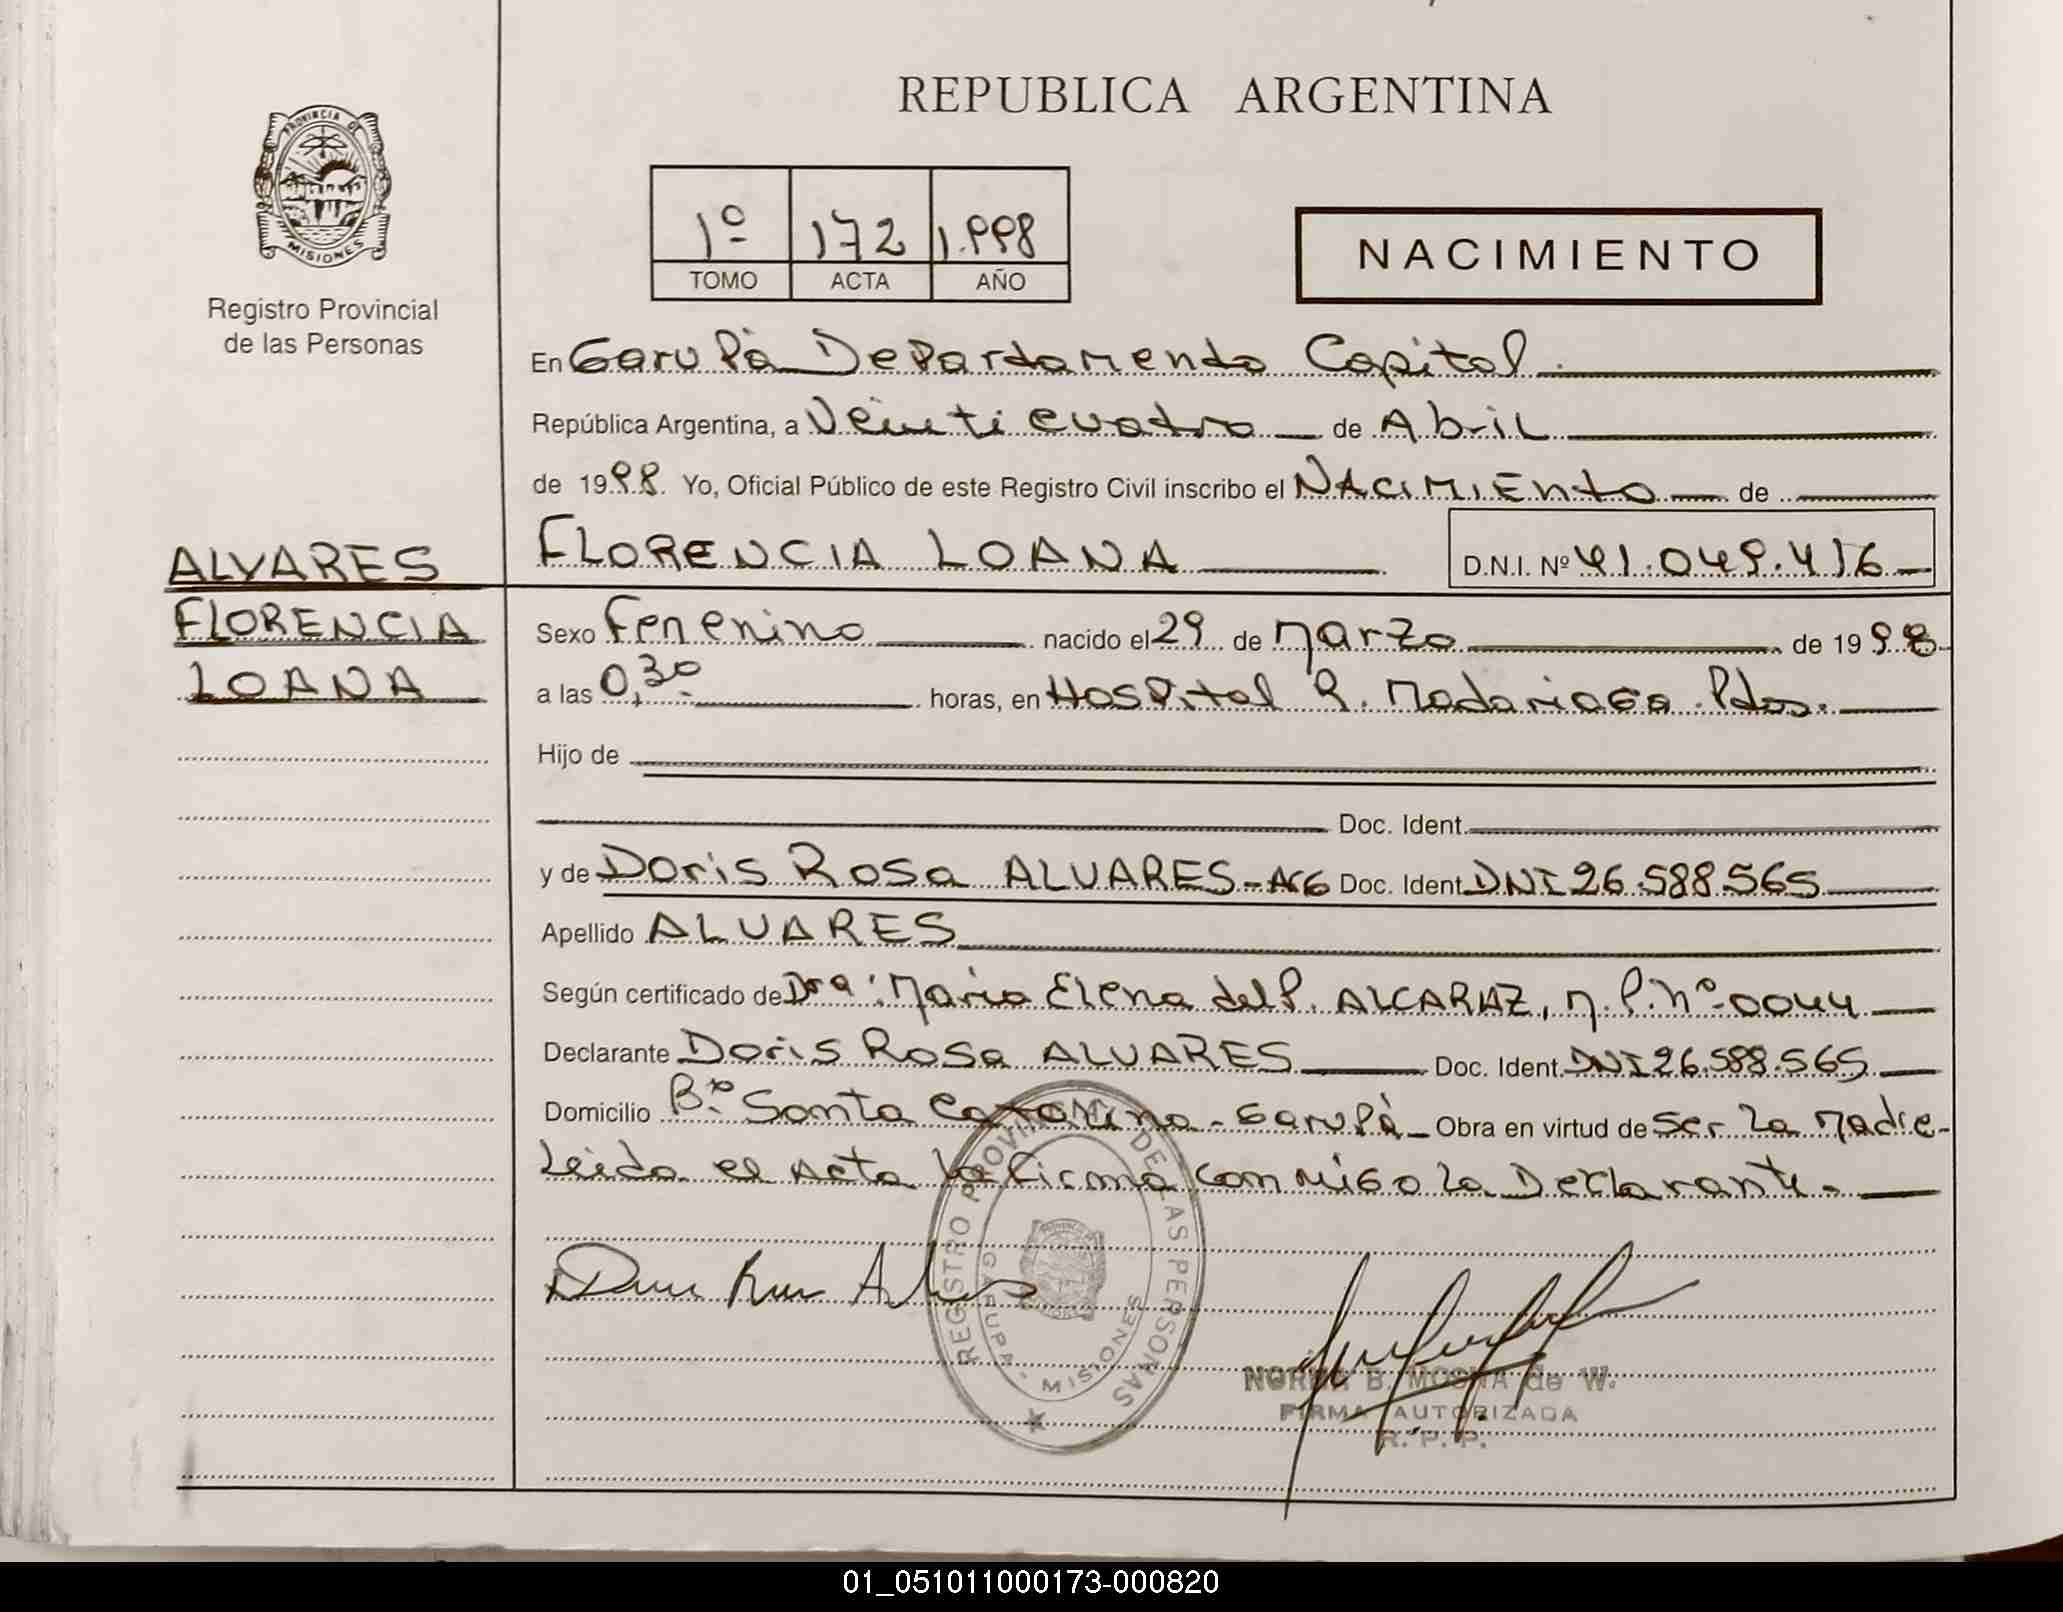 REPUBLICA ARGENTINA
PROVINCIA DE
MISIONES
Registro Provincial
de las Personas
1º 172 1.998
TOMO ACTA AÑO
NACIMIENTO
En Garupà Departamento Capital.
República Argentina, a Veinticuatro de Abril
de 1998. Yo, Oficial Público de este Registro Civil inscribo el NACIMIENTO de
ALVARES
FLORENCIA
LOANA
FLORENCIA LOANA D.N.I. Nº 41.049.416
Sexo Femenino nacido el 29 de Marzo de 1998
a las 0,30 horas, en Hospital R. Madariaga. Pdas.
Hijo de
Doc. Ident.
y de Doris Rosa ALVARES - Doc. Ident. DNI 26.588.565
Apellido ALVARES
Según certificado de Dra: Maria Elena del P. ALCARAZ, M.P. Nº 0044
Declarante Doris Rosa ALVARES Doc. Ident. DNI 26.588.565
Domicilio Bº Santa Catalina - Garupà Obra en virtud de Ser La Madre-
Leida el Acta la firma conmigo la Declarante.
REGISTRO PROVINCIAL DE LAS PERSONAS
GARUPA - MISIONES
NORMA B. de W.
FIRMA AUTORIZADA
R. P. P.
01_051011000173-000820